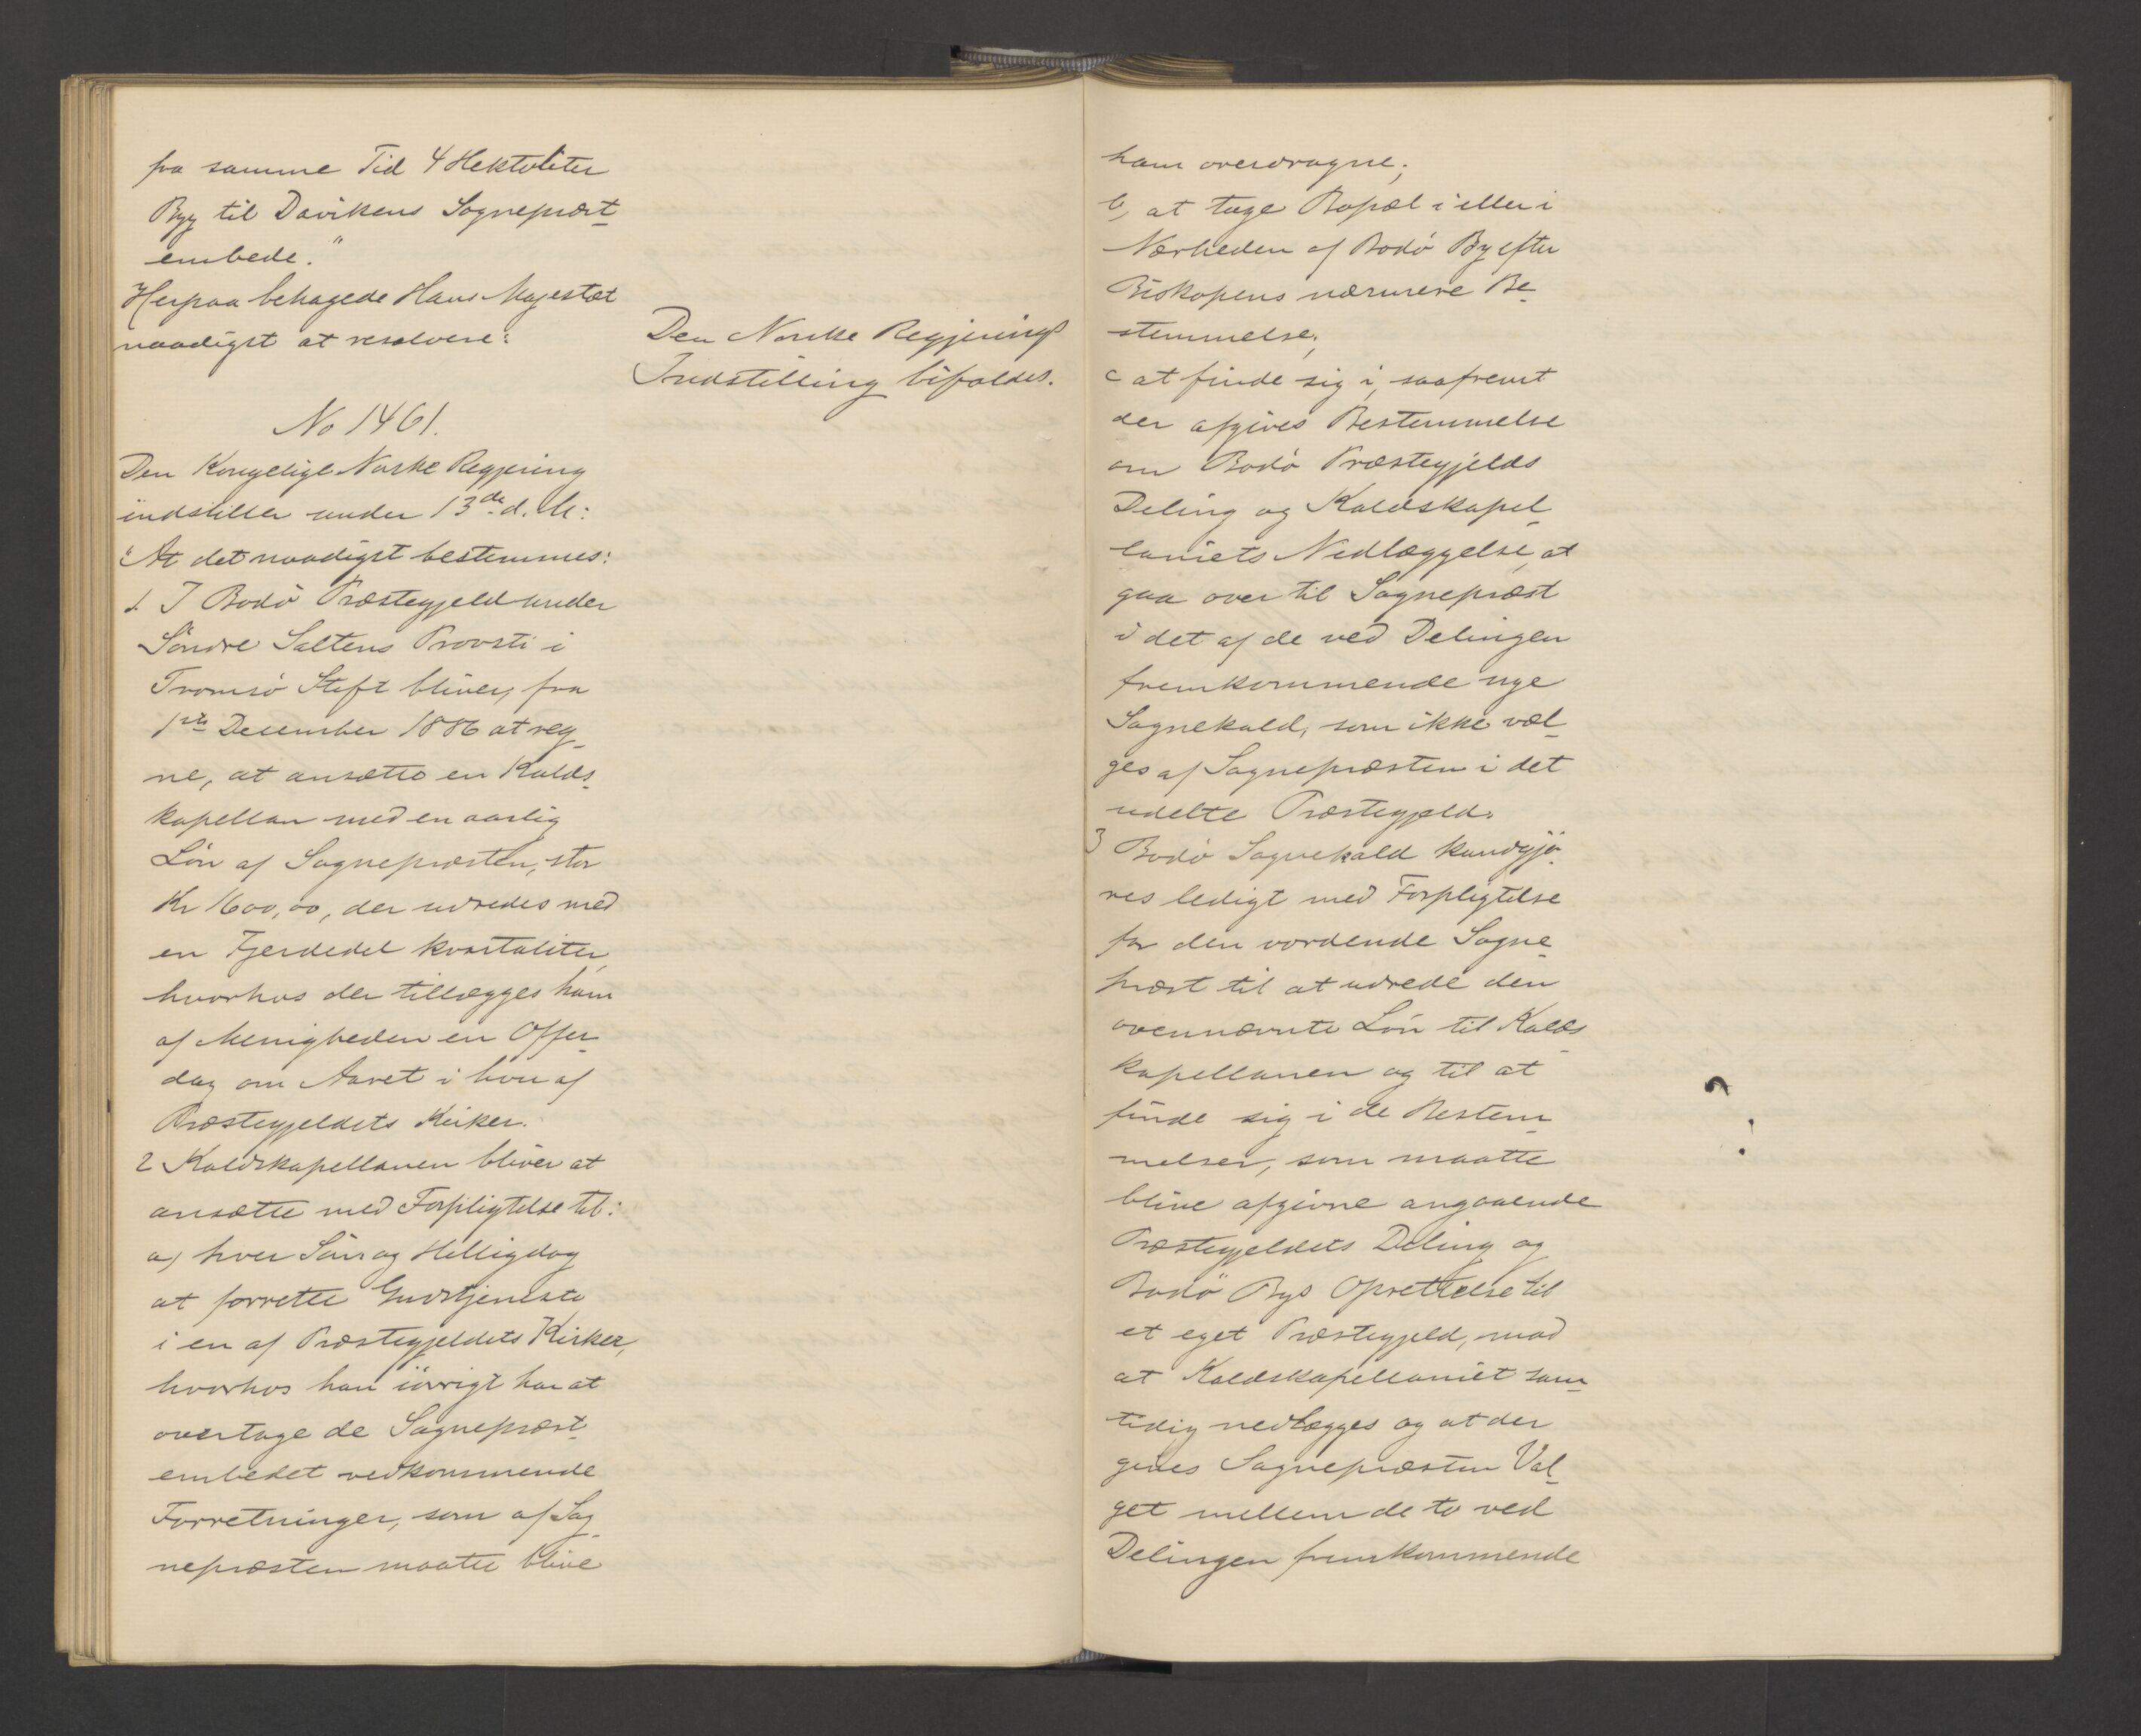 fra samme Tid 4 Hektoliter
Byg til Davikens Sognepræst-
embede."
Herpaa behagede Hans Majestæt
naadigst at resolvere:
Den Norske Regjerings
Indstilling bifaldes.
No 1461.
Den Kongelige Norske Regjering
indstiller under 13de d. M:
"At det naadigst bestemmes:
1. I Bodö Præstegjeld under
Söndre Saltens Provsti i
Tromsö Stift bliver, fra
1ste December 1886 at reg-
ne, at ansætte en Kalds-
kapellan med en aarlig
Lön af Sognepræsten, stor
Kr 1600,00, der udredes med
en Fjerdedel kvartaliter,
hvorhos der tillægges ham
af Menigheden en Offer-
dag om Aaret i hver af
Præstegjeldets Kirker.
2 Kaldskapellanen bliver at
ansætte med Forpligtelse til:
a) hver Sön og Helligdag
at forrette Gudstjeneste
i en af Præstegjeldets Kirker,
hvorhos han iövrigt har at
overtage de Sognepræst-
embedet vedkommende
Forretninger, som af Sog-
nepræsten maatte blive
ham overdragne;
b, at tage Bopæl i eller i
Nærheden af Bodö By efter
Biskopens nærmere Be-
stemmelse;
c at finde sig i, saafremt
der afgives Bestemmelse
om Bodö Præstegjelds
Deling og Kaldskapel-
laniets Nedlæggelse, at
gaa over til Sognepræst
i det af de ved Delingen
fremkommende nye
Sognekald, som ikke væl-
ges af Sognepræsten i det
udelte Præstegjeld.
3 Bodö Sognekald kundgjö-
res ledigt med Forpligtelse
for den vordende Sogne-
præst til at udrede den
ovennævnte Lön til Kalds-
kapellanen og til at
finde sig i de Bestem-
melser, som maatte
blive afgivne angaaende
Præstegjeldets Deling og
Bodö Bys Oprettelse til
et eget Præstegjeld, mod
at Kaldskapellaniet sam-
tidig nedlægges og at der
gives Sognepræsten Val-
get mellem de to ved
Delingen fremkommende